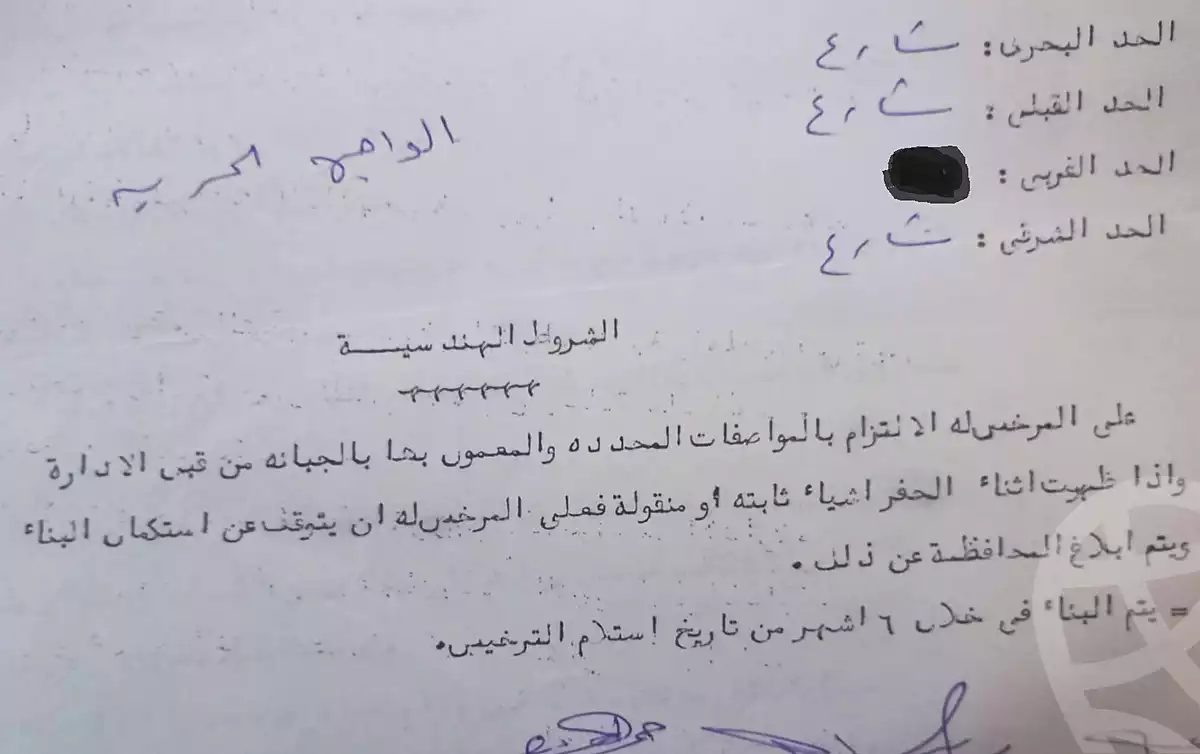 الحد البحرى: شارع
الحد القبلى: شارع
الحد الغربى:
الحد الشرقى: شارع
الواجهه البحريه
الشروط الهندسيـــة
على المرخص له الالتزام بالمواصفات المحدده والمعمول بها بالجبانه من قبل الادارة
واذا ظهرت اثناء الحفر اشياء ثابته أو منقولة فعلى المرخص له ان يتوقف عن استكمال البناء
ويتم ابلاغ المحافظة عن ذلك .
= يتم البناء فى خلال ٦ اشهر من تاريخ إستلام الترخيص.